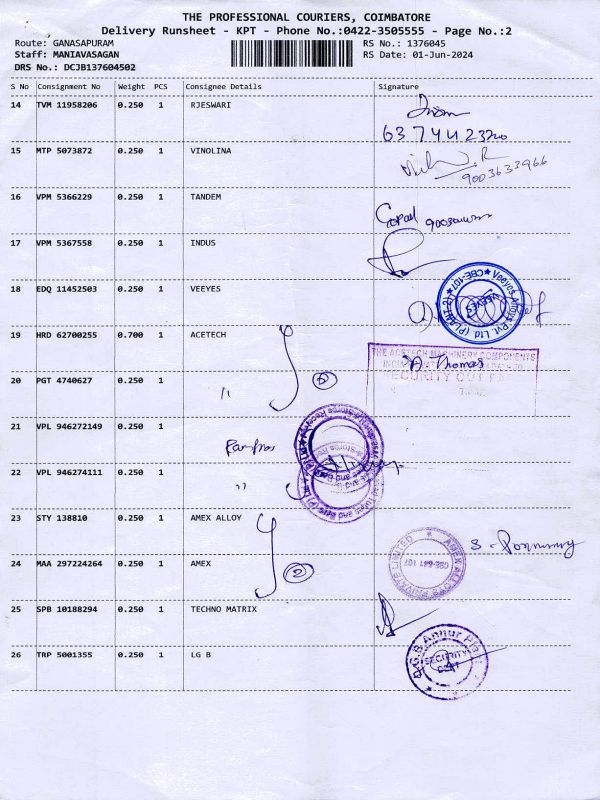 THE PROFESSIONAL COURIERS, COIMBATORE
Delivery Runsheet - KPT - Phone No.:0422-3505555 - Page No.:2
Route: GANASAPURAM RS No.: 1376045
Staff: MANIAVASAGAN RS Date: 01-Jun-2024
DRS No.: DCJB137604502
S No Consignment No Weight PCS Consignee Details Signature
14 TVM 11958206 0.250 1 RJESWARI
15 MTP 5073872 0.250 1 VINOLINA
9003633966
16 VPM 5366229 0.250 1 TANDEM
Gopal
17 VPM 5367558 0.250 1 INDUS
18 EDQ 11452503 0.250 1 VEEYES
Veeyes Alloys Pvt Ltd (PLANT-2) ★ CBE-107 ★
19 HRD 62700255 0.700 1 ACETECH
THE ACETECH MACHINERY COMPONENTS
Thomas
SECURITY
20 PGT 4740627 0.250 1 "
21 VPL 946272149 0.250 1
22 VPL 946274111 0.250 1 "
23 STY 138810 0.250 1 AMEX ALLOY
AMEX ALLOYS PRIVATE LIMITED
24 MAA 297224264 0.250 1 AMEX 2
25 SPB 10188294 0.250 1 TECHNO MATRIX
26 TRP 5001355 0.250 1 LG B
SECURITY
DEPT